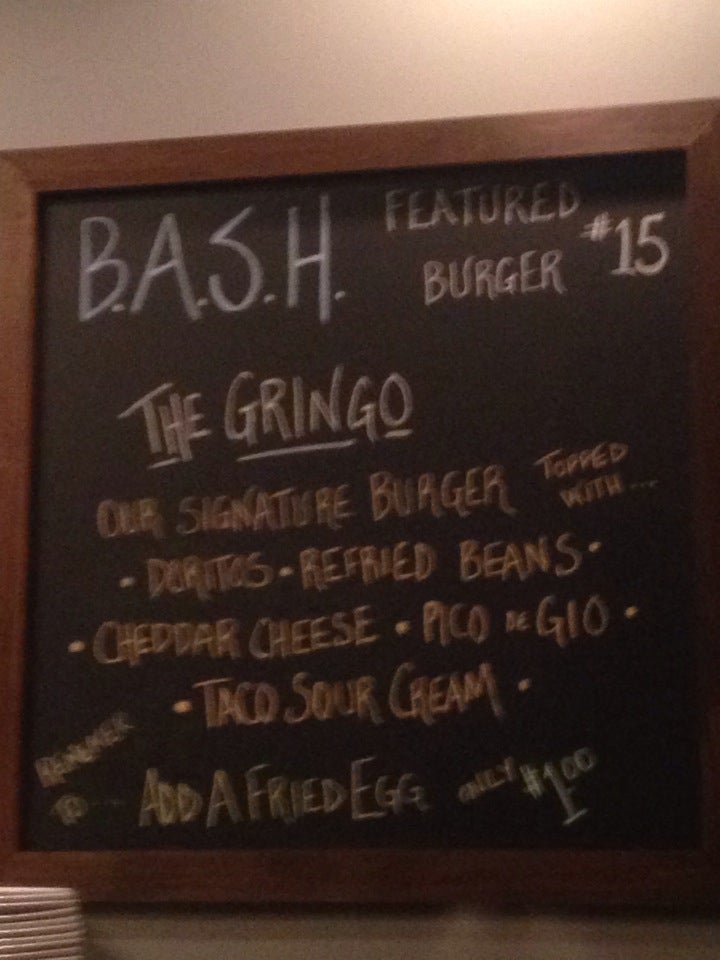 B.A.S.H.
FEATURED
BURGER
#15
THE GRINGO
OUR SIGNATURE BURGER
TOPPED
WITH...
• DORITOS • REFRIED BEANS •
• CHEDDAR CHEESE • PICO DE GIO •
• TACO SOUR CREAM •
REMEMBER
TO...
ADD A FRIED EGG
ONLY
$1.00